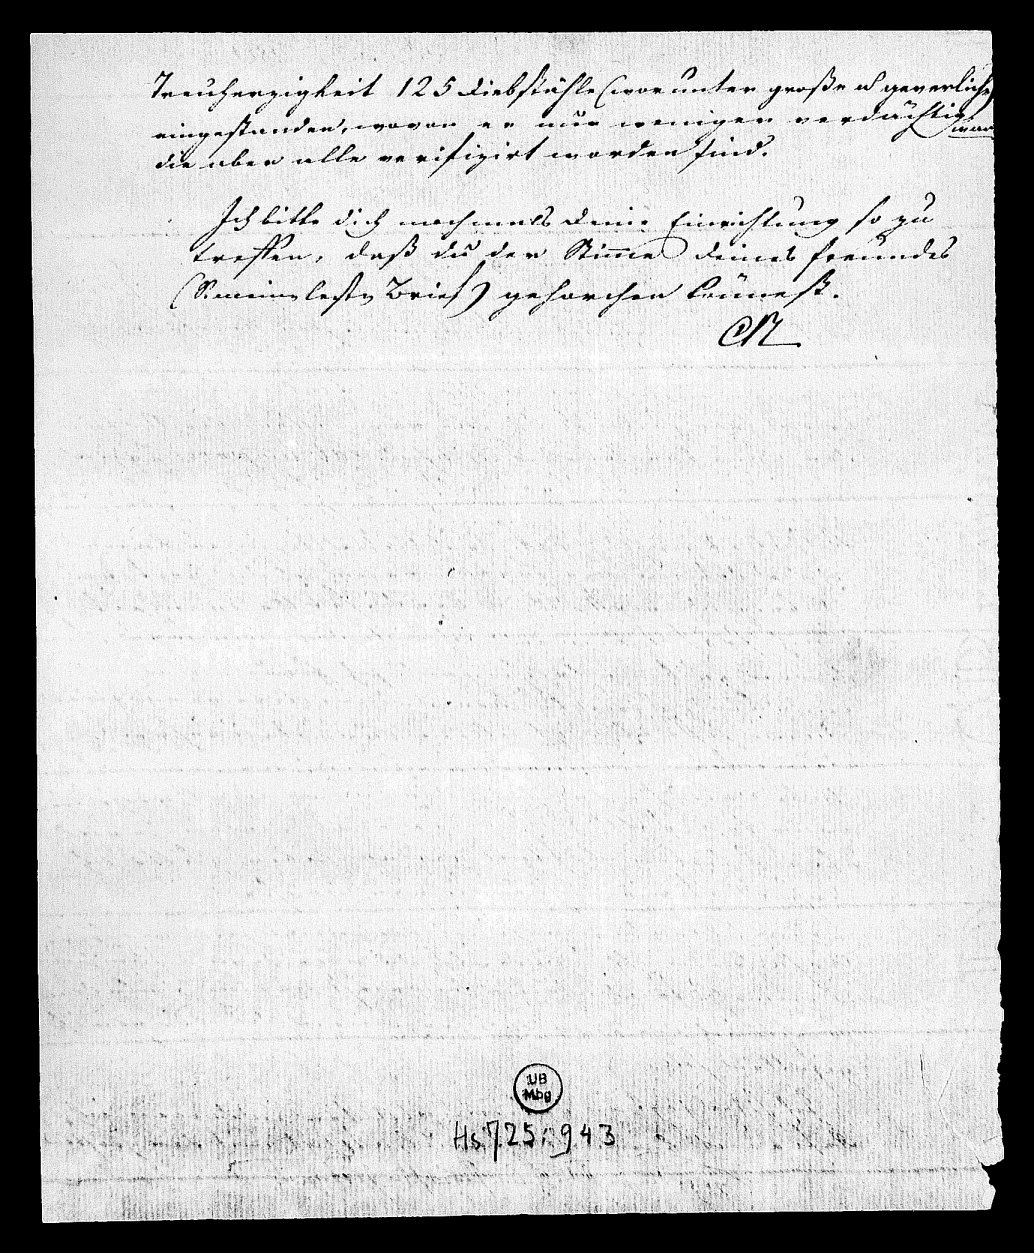 Treuherzigkeit 125 Diebstähle (worunter große u geverliche)
eingestanden, wovon er nur weniger verdächtig war
die aber alle verifizirt worden sind.
Ich bitte dich nochmals deine Einrichtung so zu
treffen, daß du der Stimme deines Freundes
(S. meinen lezten Brief) gehorchen könnest.
UB
Mbg
Hs 725:943